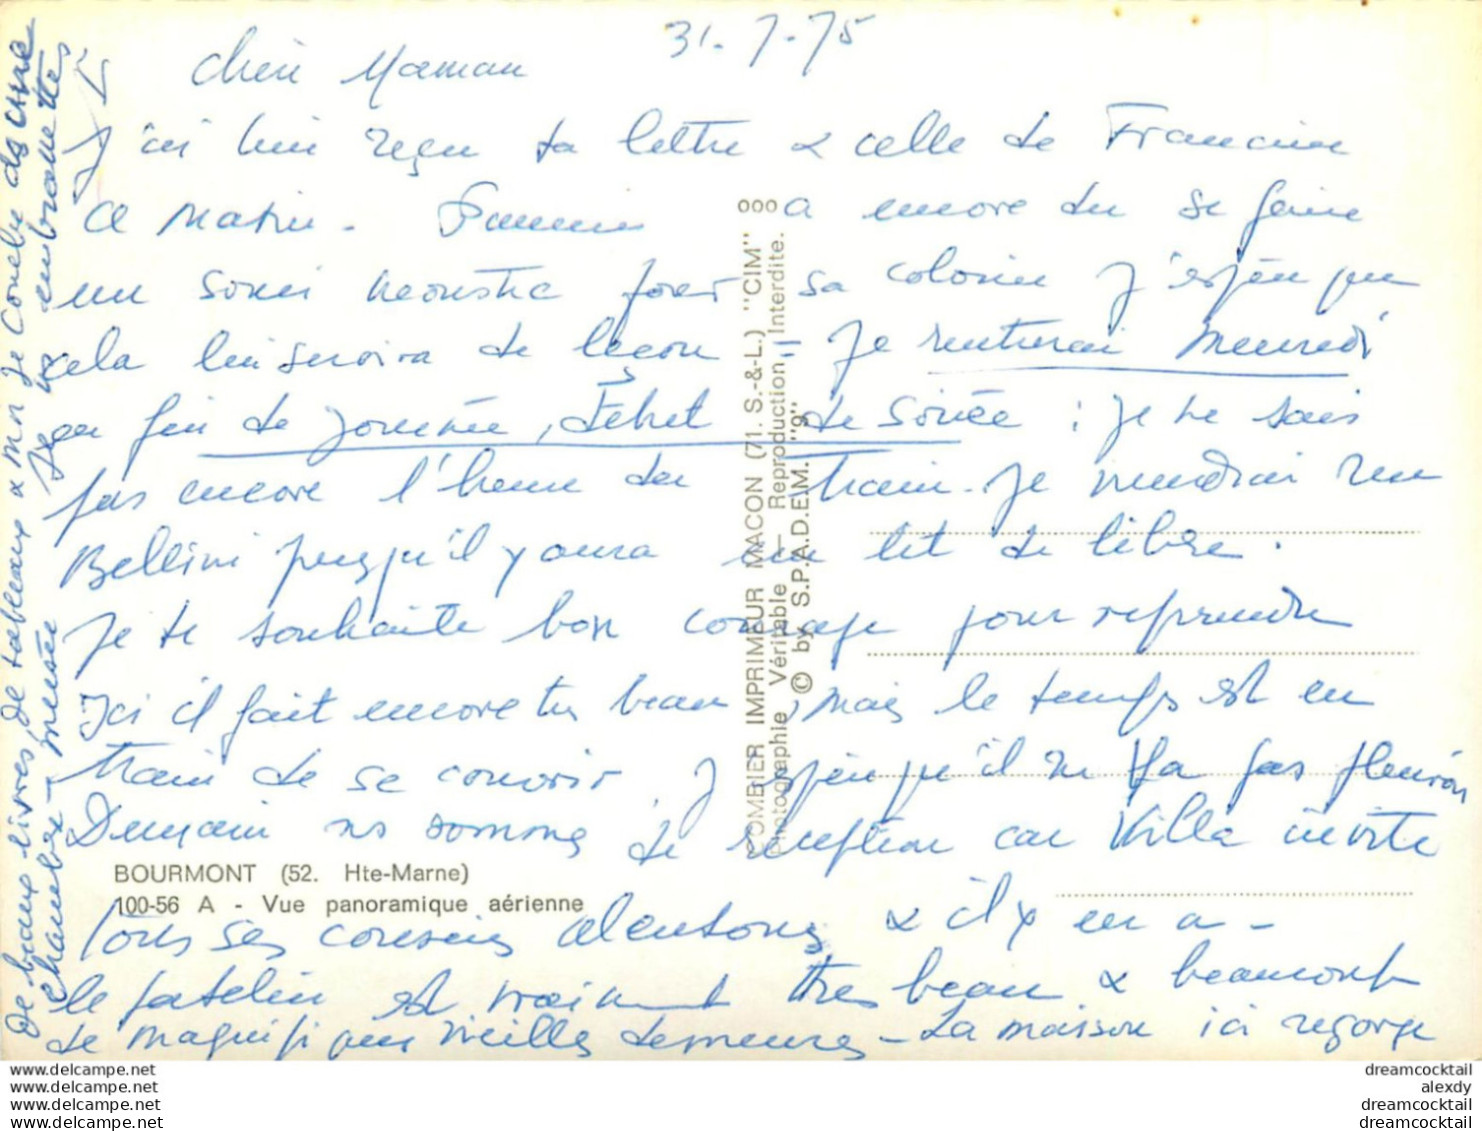 31-7-75
Chère Maman
J'ai bien reçu ta lettre & celle de Francine
ce matin. a encore du se faire
un souci pour sa colonie J'espère que
cela lui servira de leçon = Je rentrerai Mercredi
en fin de journée, début de soirée : je ne sais
pas encore l'heure du train. Je viendrai rue
Bellini puisqu'il y aura un lit de libre.
Je te souhaite bon courage pour reprendre
Ici il fait encore très beau, mais le temps est en
train de se couvrir. J'espère qu'il ne va pas pleuvoir
Demain ns sommes de réception car Villa invite
BOURMONT (52. Hte-Marne)
100-56 A - Vue panoramique aérienne
tous ses cousins alentours & il y en a -
le patelin est vraiment très beau & beaucoup
de magnifiques vieilles demeures - La maison ici regorge
de beaux livres, de tableaux & moi je couche ds une
chambre - musée Je vs embrasse ttes
COMBIER IMPRIMEUR MACON (71. S.-&-L.) "CIM"
Photographie Véritable — Reproduction Interdite.
© by S.P.A.D.E.M. "9"
www.delcampe.net
www.delcampe.net
www.delcampe.net
www.delcampe.net
dreamcocktail
alexdy
dreamcocktail
dreamcocktail